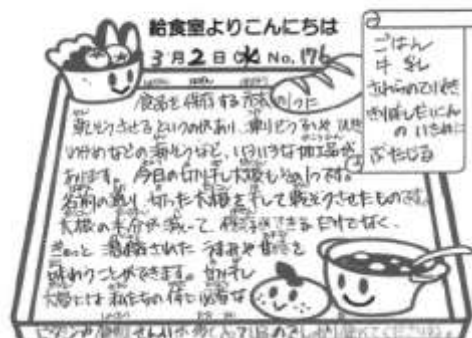 給食室よりこんにちは
3月2日(火) No.176
ごはん
牛乳
さわらのてりやき
きりぼしだいこん
のいために
ぶたじる
食品を保存する方法の1つに
乾そうさせるというのがあり、凍りどうふや ひじき
わかめなどの海そうなど、いろいろな加工品が
あります。今日の切り干し大根もその1つです。
名前の通り 切った大根を干して乾そうさせたものです。
大根の水分が減って、保存ができるだけでなく、
ぎゅっと濃縮された うまみや甘さを
味わうことができます。切り干し
大根には 私たちの体に必要な